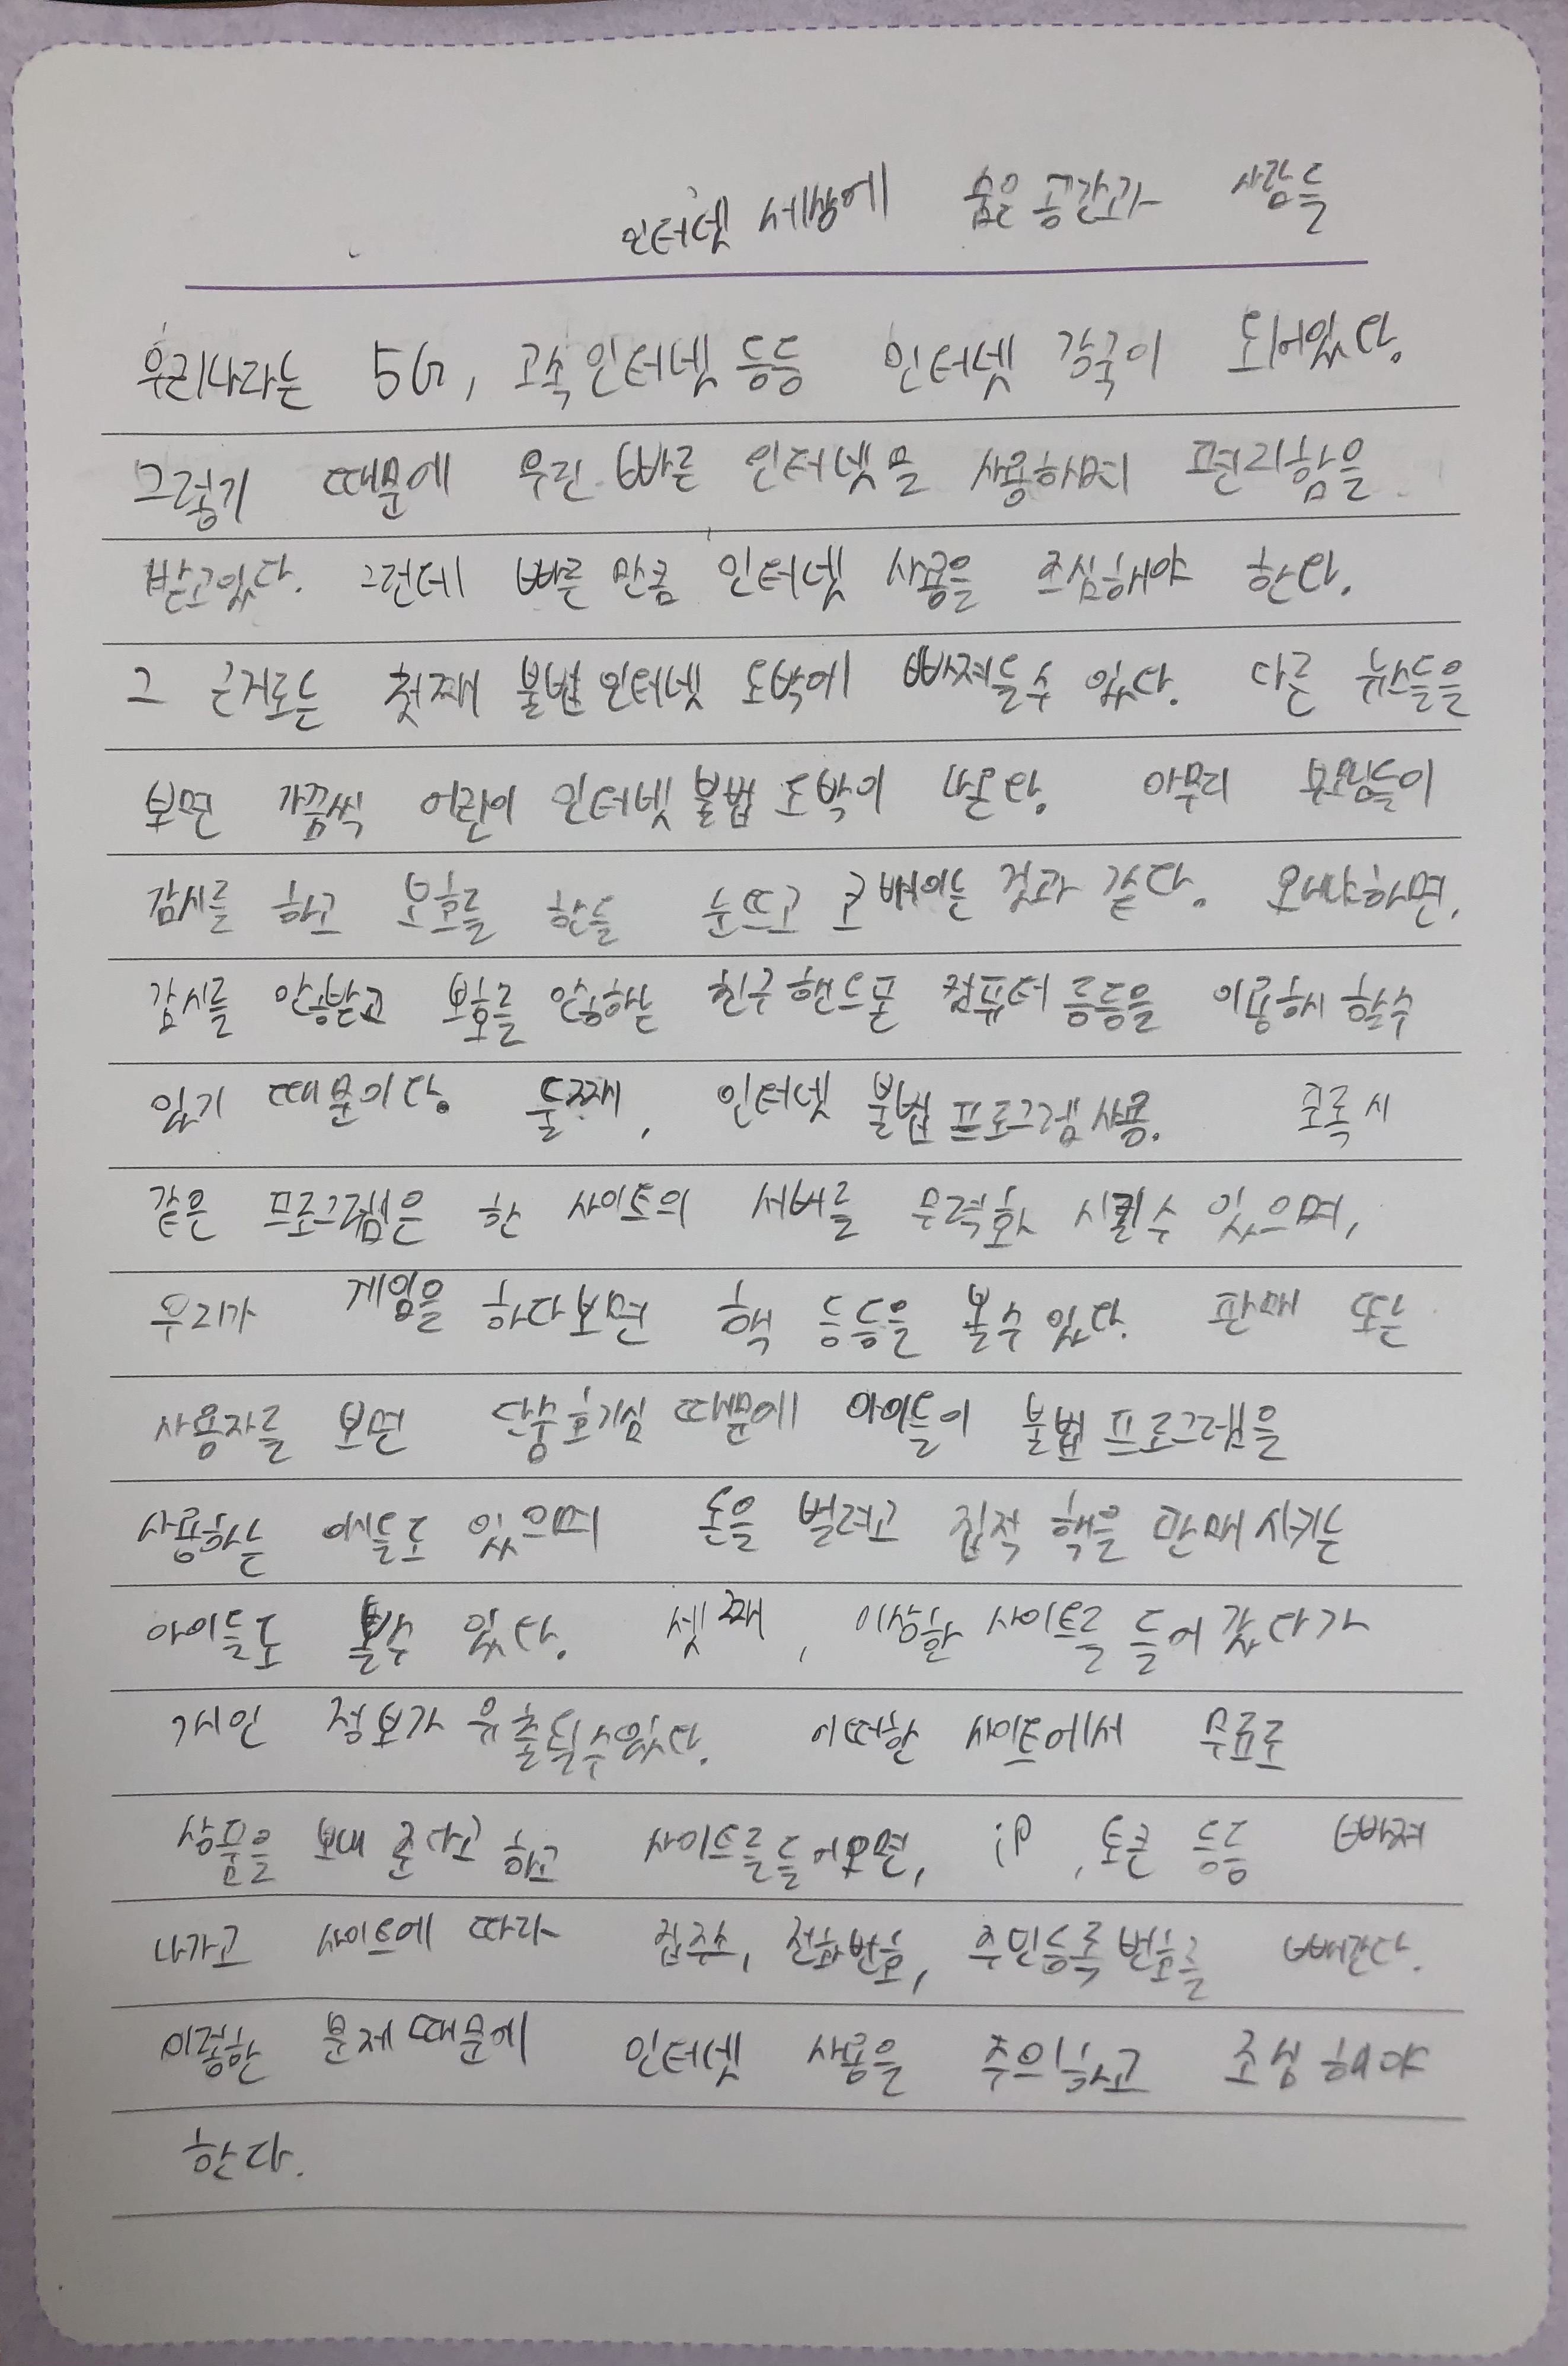 인터넷 세상에 숨은 공간과 사람들
우리나라는 5G, 고속인터넷 등등 인터넷 강국이 되어있다.
그렇기 때문에 우린 빠른 인터넷을 사용하며 편리함을
받고있다. 그런데 빠른 만큼 인터넷 사용을 조심해야 한다.
그 근거로는 첫째 불법인터넷 도박에 빠져들수 있다. 다른 뉴스들을
보면 가끔씩 어린이 인터넷 불법 도박이 뜬다. 아무리 부모님들이
감시를 하고 보호를 한들 눈뜨고 코 베이는 것과 같다. 왜냐하면,
감시를 안받고 보호를 안하는 친구 핸드폰 컴퓨터 등등을 이용해 할수
있기 때문이다. 둘째, 인터넷 불법 프로그램 사용. 프록시
같은 프로그램은 한 사이트의 서버를 무력화 시킬수 있으며,
우리가 게임을 하다보면 핵 등등을 볼수 있다. 판매 또는
사용자를 보면 단순호기심 때문에 아이들이 불법 프로그램을
사용하는 애들도 있으며 돈을 벌려고 직접 핵을 판매 시키는
아이들도 볼수 있다. 셋째, 이상한 사이트를 들어 갔다가
개인 정보가 유출될수있다. 어떠한 사이트에서 무료로
상품을 보내 준다고 하고 사이트를 들어오면, iP, 토큰 등등 빠져
나가고 사이트에 따라 집주소, 전화번호, 주민등록 번호를 빼간다.
이러한 문제 때문에 인터넷 사용을 주의하고 조심해야
한다.